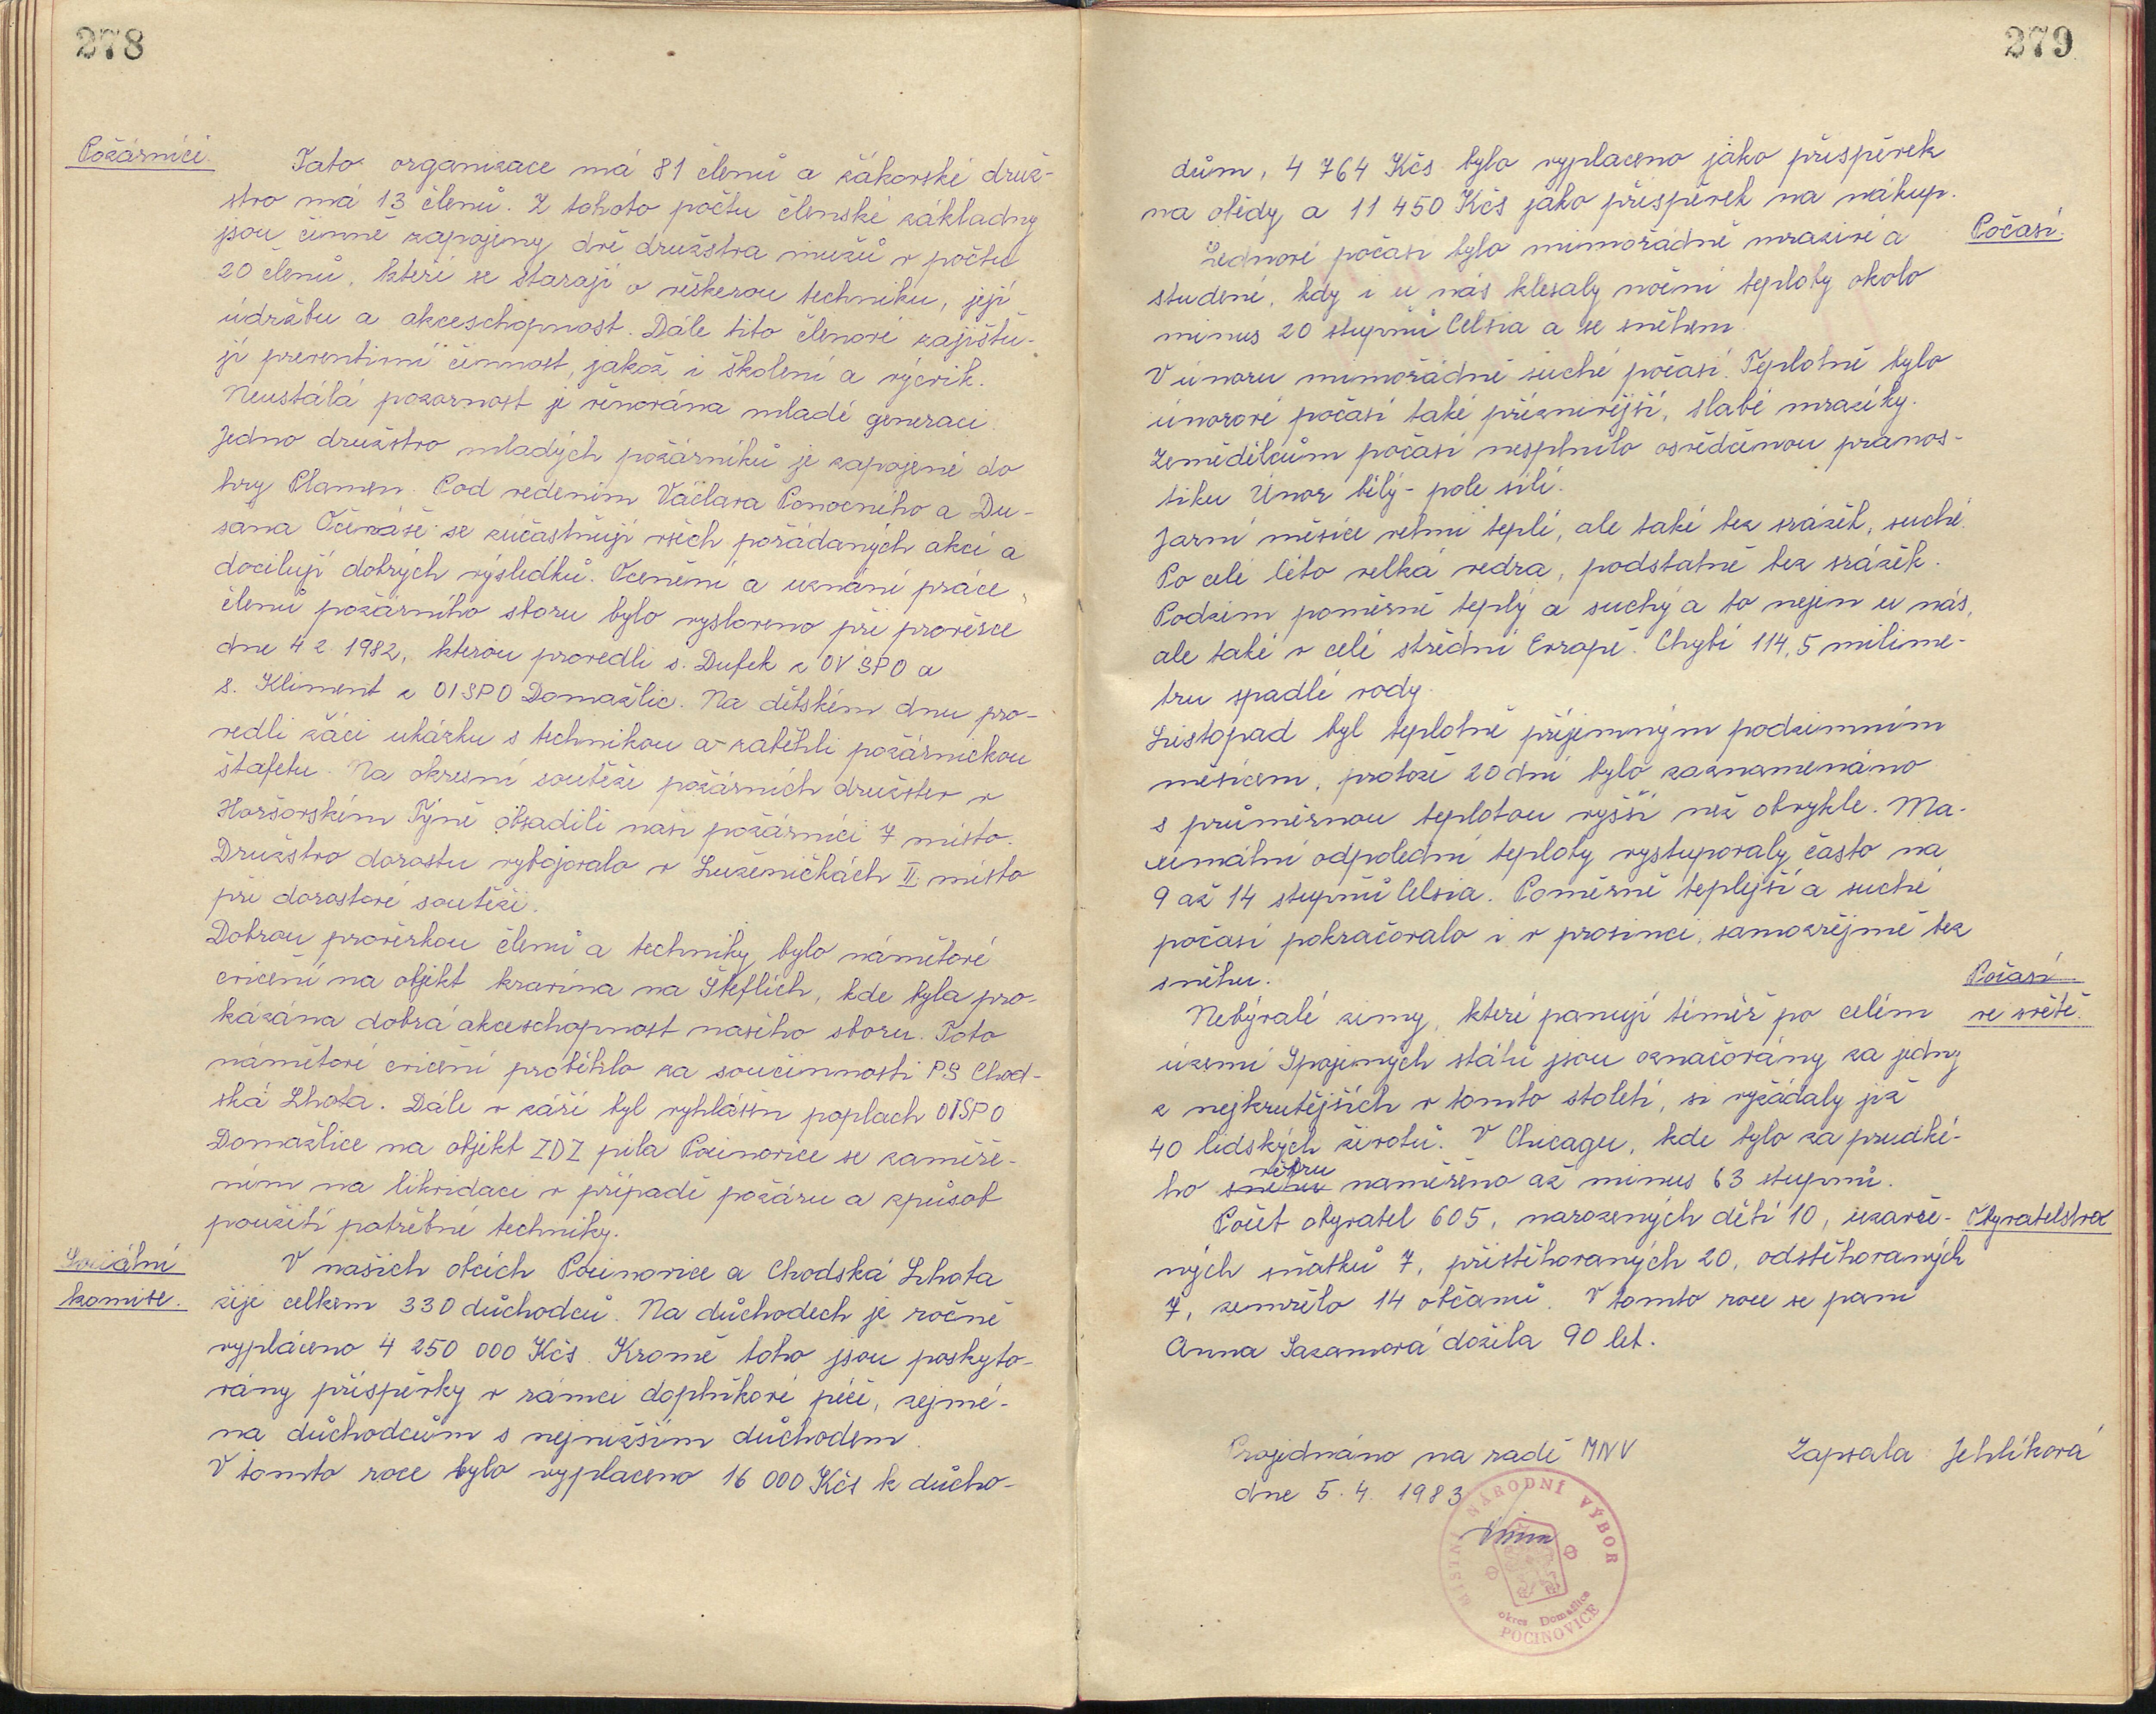 278
Požárníci.
Tato organizace má 81 členů a žákovské druž-
stvo má 13 členů. Z tohoto počtu členské základny
jsou činně zapojeny dvě družstva mužů v počtu
20 členů, kteří se starají o veškerou techniku, její
údržbu a akceschopnost. Dále tito členové zajištu-
jí preventivní činnost, jakož i školení a výcvik.
Neustálá pozornost je věnována mladé generaci.
Jedno družstvo mladých požárníků je zapojené do
hry Plamen. Pod vedením Václava Ponocného a Du-
šana Očenáše se zúčastňují všech pořádaných akcí a
docilují dobrých výsledků. Ocenění a uznání práce
členů požárního sboru bylo vysloveno při prověrce
dne 4 2. 1982, kterou provedli s. Dufek z OV SPO a
s. Kliment z OISPO Domažlic. Na dětském dnu pro-
vedli žáci ukázku s technikou a zaběhli požárnickou
štafetu. Na okresní soutěži požárních družstev v
Horšovském Týně obsadili naši požárníci 7 místo.
Družstvo dorostu vybojovalo v Luženičkách II. místo
při dorostové soutěži.
Dobrou prověrkou členů a techniky bylo námětové
cvičení na objekt kravína na Šteflích, kde byla pro-
kázána dobrá akceschopnost našeho sboru. Toto
námětové cvičení proběhlo za součinnosti PS Chod-
ská Lhota. Dále v září byl vyhlášen poplach OISPO
Domažlice na objekt ZDZ pila Pocinovice se zaměře-
ním na likvidaci v případě požáru a způsob
použití potřebné techniky.
Sociální
komise.
V našich obcích Pocinovice a Chodská Lhota
žije celkem 330 důchodců. Na důchodech je ročně
vypláceno 4 250 000 Kčs. Kromě toho jsou poskyto-
vány příspěvky v rámci doplňkové péče, zejmé-
na důchodcům s nejnižším důchodem.
V tomto roce bylo vyplaceno 16 000 Kčs k důcho-
279
dům, 4 764 Kčs bylo vyplaceno jako příspěvek
na obědy a 11 450 Kčs jako příspěvek na nákup.
Počasí.
Lednové počasí bylo mimořádně mrazivé a
studené, kdy i u nás klesaly noční teploty okolo
minus 20 stupňů Celsia a se sněhem.
V únoru mimořádně suché počasí. Teplotně bylo
únorové počasí také příznivější, slabé mrazíky.
Zemědělcům počasí nesplnilo osvědčenou pranos-
tiku Únor bílý - pole sílí.
Jarní měsíce velmi teplé, ale také bez srážek, suché.
Po celé léto velká vedra, podstatně bez srážek.
Podzim poměrně teplý a suchý a to nejen u nás,
ale také v celé střední Evropě. Chybí 114,5 milime-
tru spadlé vody.
Listopad byl teplotně příjemným podzimním
měsícem, protože 20 dní bylo zaznamenáno
s průměrnou teplotou vyšší než obvykle. Ma-
ximální odpolední teploty vystupovaly často na
9 až 14 stupňů Celsia. Poměrně teplejší a suché
počasí pokračovalo i v prosinci, samozřejmě bez
sněhu.
Počasí
ve světě.
Nebývalé zimy, které panují téměř po celém
území Spojených států jsou označovány za jedny
z nejkrutějších v tomto století, si vyžádaly již
40 lidských životů. V Chicagu, kde bylo za prudké-
větru
ho sněhu naměřeno až minus 63 stupňů.
Počet obyvatel 605, narozených dětí 10, uzavře-
Obyvatelstvo
ných sňatků 7, přistěhovaných 20, odstěhovaných
7, zemřelo 14 občanů. V tomto roce se paní
Anna Sazamová dožila 90 let.
Projednáno na radě MNV
dne 5. 4. 1983
Zapsala Jehlíková
MÍSTNÍ NÁRODNÍ VÝBOR
okres Domažlice
POCINOVICE